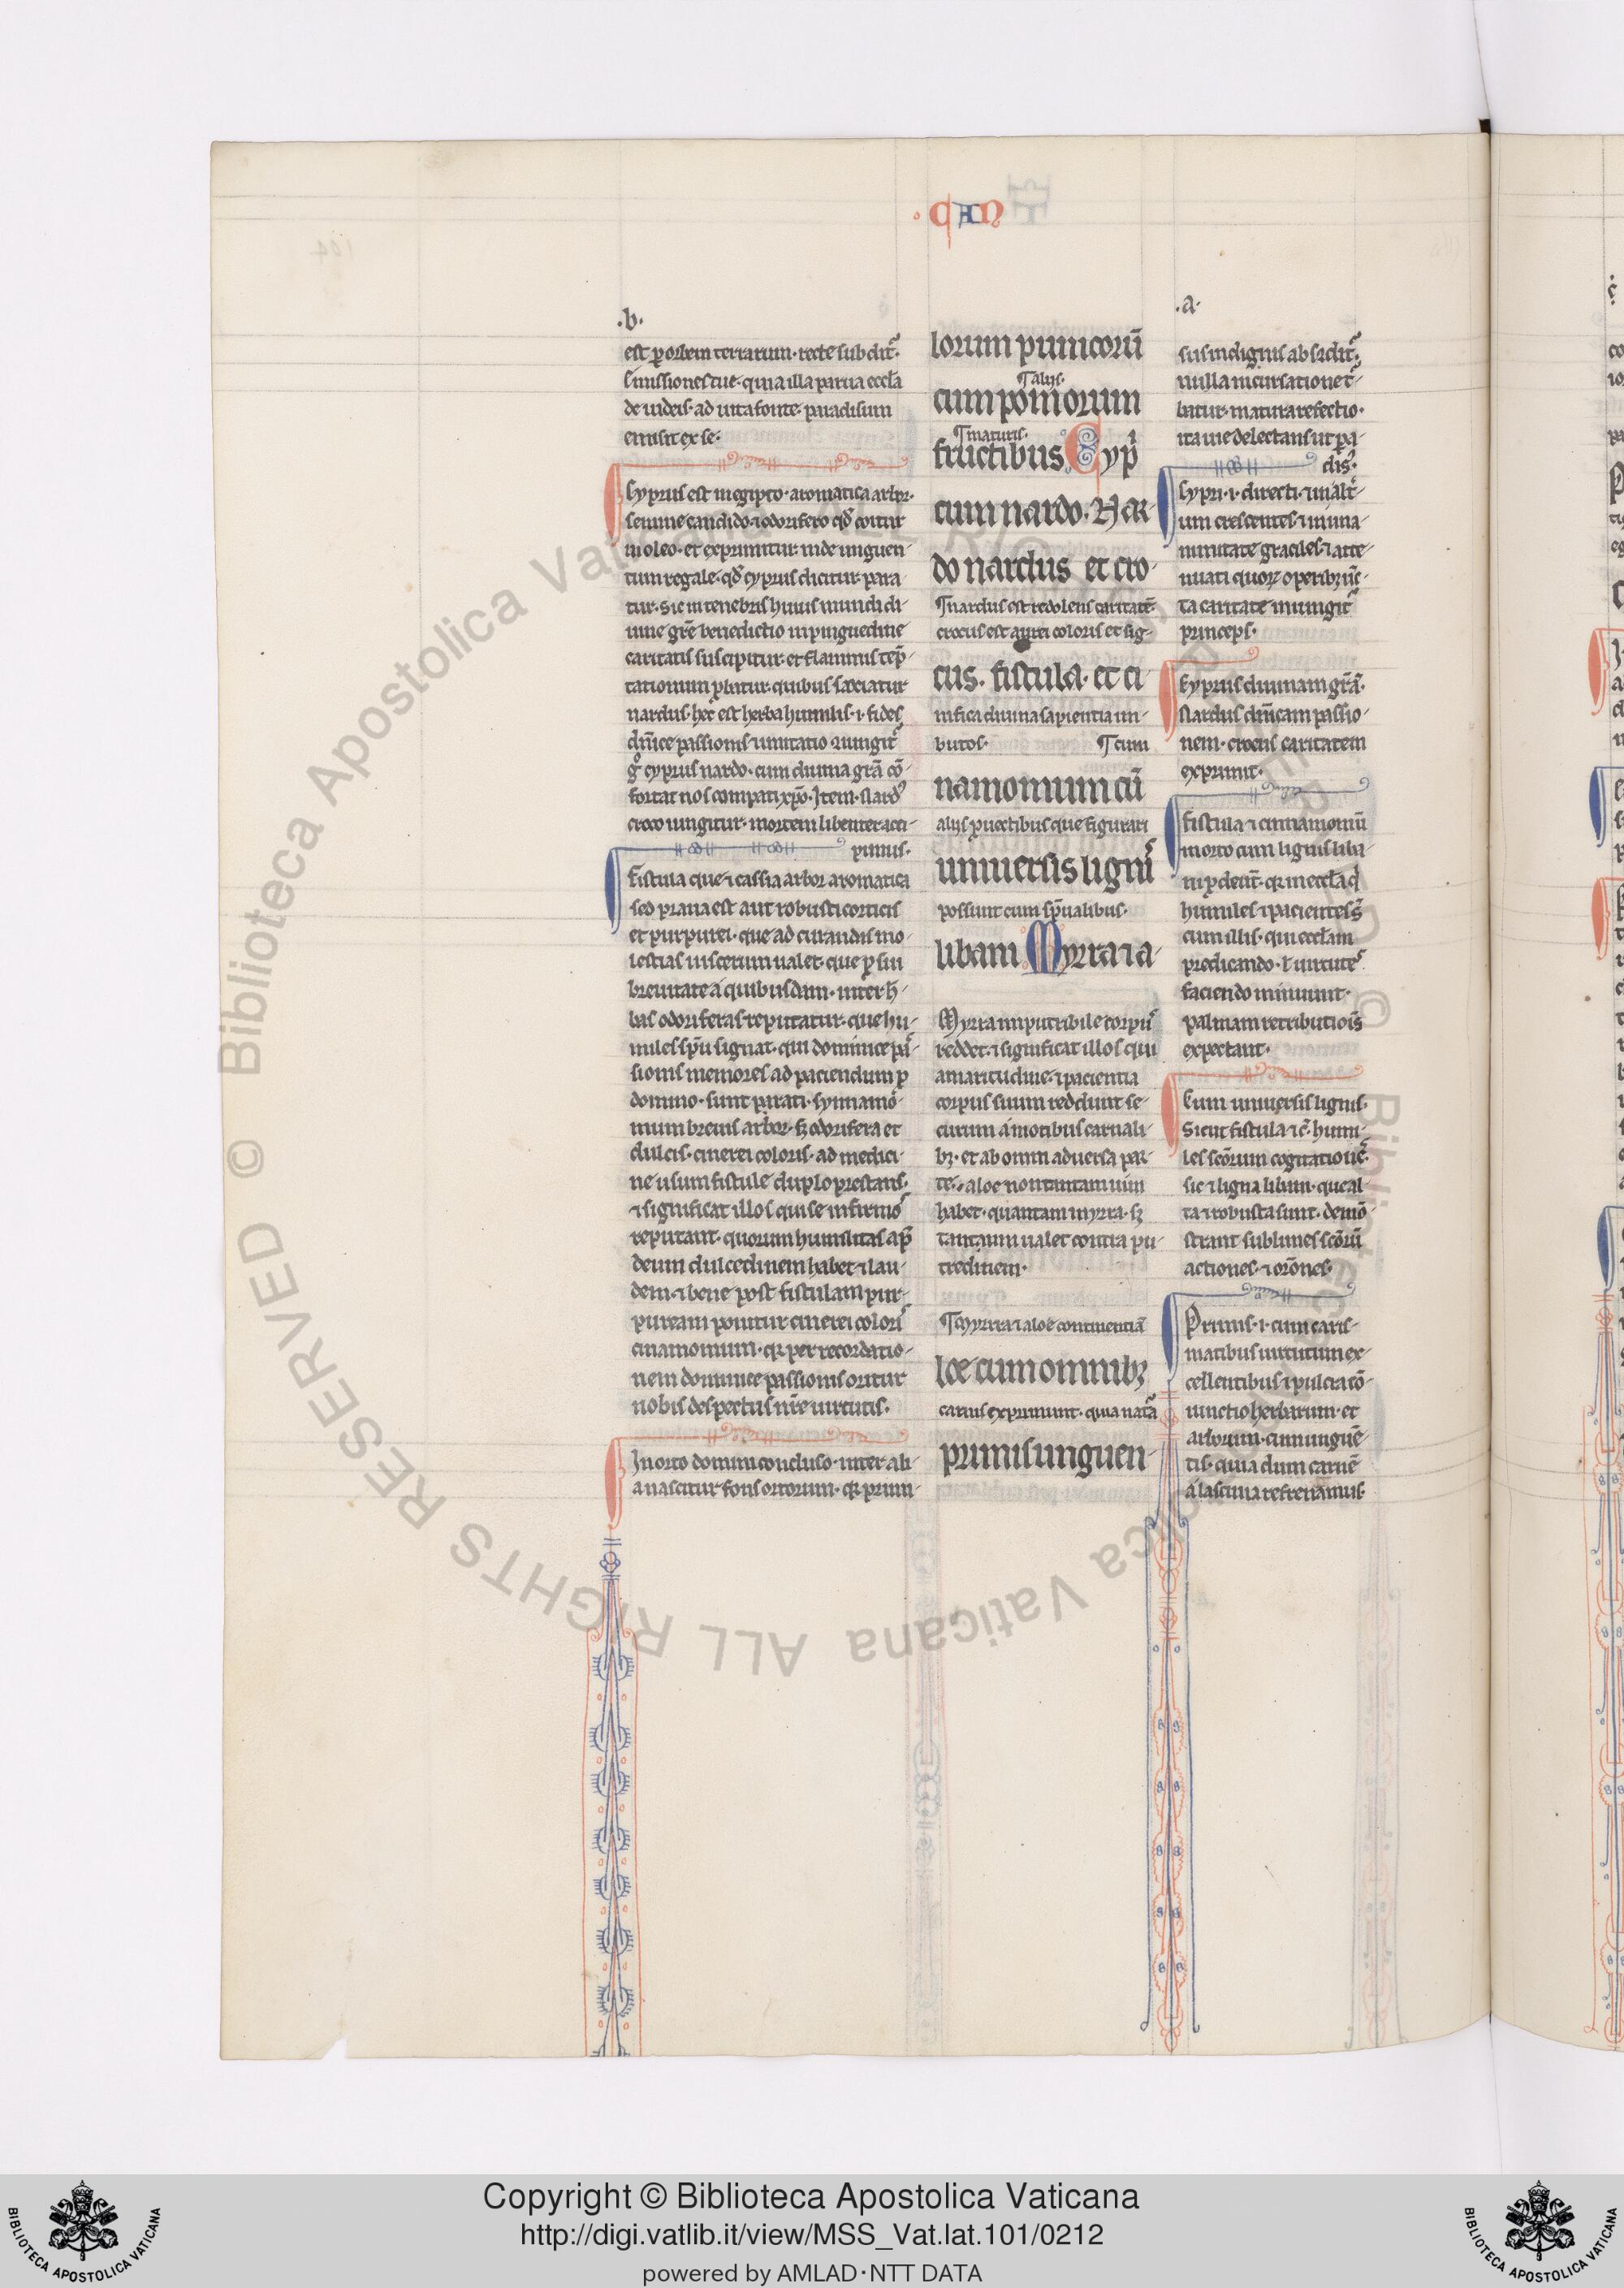 CAN
.b.
est ꝑ orbem terrarum· recte subdit᷑·
Emissiones tue· quia illa parua eccl̄a
de iudeis· ad uitā fonte paradisum
emisit ex se·
Cyprus est in egipto· aromatica arbor·
semine candido ⁊ odorifero qđ coitur
in oleo· et exprimitur inde unguen-
tum regale· qđ cyprus dicitur para
tur· sic in tenebris huius mundi di-
uine gr̄e benedictio in pinguedine
caritatis suscipitur· et flammis tep̄
tationum ꝓbatur· quibus
nardus· hec est herba humilis· .i. fides
dn̄ice passionis ⁊ imitatio
gͦ cyprus nardo· cum diuina gr̄a cō-
fortat nos compati xp̄o· Item· Nard᷒
croco iungitur· mortem libenter acci-
pimus·
Fistula que ⁊ cassia arbor aromatica
sed praua est aut robusti corticis
et purpurei· que ad curandas mo-
lestias uiscerum ualet· que ꝓ sui
breuitate a quibusdam· inter h̄-
bas odoriferas reputatur· que hu-
miles sp̄u signat· qui dominice pas-
sionis memores ad paciendum ꝓ
domino· sunt parati· Synnamo-
mum breuis arbor· sꝫ odorifera et
dulcis· cinerei coloris· ad medici-
ne usum fistule duplo prestans·
⁊ significat illos qui se infirmos
reputant· quorum humilitas ap̄
deum dulcedinem habet ⁊ lau-
dem· ⁊ bene post fistulam pur-
puream ponitur cinerei coloris
cinamomum· qꝛ per recordatio-
nem dominice passionis oritur
nobis despectus nr̄e uirtutis·
In orto domini concluso· inter ali-
a nascitur fons ortorum· qꝛ primi-
lorum punicorū
¶ aliis·
cum pomorum
¶ maturis·
fructibus Cyp̄i
cum nardo. Nar-
do nardus et cro-
¶ nardus est redolens caritatē·
crocus est aurei coloris et sig-
cus. fistula. et ci-
nifica diuina sapientia im-
butos· ¶ cum
namomum cū
aliis ꝓuectibus que figurari
uniuersis lignis
possunt cum sp̄ualibus·
libani Myrra ⁊ a-
Myrra imputribile corpus
reddet· ⁊ significat illos qui
amaritudine· ⁊ pacientia
corpus suum reddunt se-
curum a motibus carnali-
bꝫ· et ab omni aduersa par-
te· aloe non tantam uim
habet· quantam myrra· sꝫ
tantum ualet contra pu-
tredinem·
¶ Myrra ⁊ aloe continentiā
loe cum omnibꝫ
carnis exprimunt· quia
primis unguen-
.a.
sus indignis abscidit᷑·
nulla incursatione
batur· matura refectio·
ita uie delectans ut ꝑa-
dis᷒·
Cypri· .i. directi· in alt᷑-
um crescentes ⁊ in una-
nimitate graciles· ⁊ atte-
nuati quoꝝ operibꝫ
ta caritate inungit᷑
princeps·
Cyprus diuinam gr̄am·
Nardus dn̄icam passio-
nem· crocus caritatem
exprimit·
Fistula ⁊ cinnamomū
in orto cum lignis liba-
ni ꝓdeūt· qꝛ in eccl̄a q̄
humiles ⁊ pacientes s̄t
cum illis· qui eccl̄am
predicando· ł uirtutes
faciendo muniunt·
palmam retributiois
expectant·
Cum uniuersis lignis·
Sicut fistula ⁊c̄· humi-
les sc̄orum cogitationes·
sic ⁊ ligna libani· que al-
ta ⁊ robusta sunt· demō-
strant sublimes sc̄orū
actiones· ⁊ or̄ones·
Primis· .i. cum caris-
matibus uirtutum ex-
cellentibus ⁊ pulcra cō-
iunctio herbarum· et
arborum· cum unguē-
tis· quia dum carnē
a lasciuia refrenamus·
Copyright © Biblioteca Apostolica Vaticana
http://digi.vatlib.it/view/MSS_Vat.lat.101/0212
powered by AMLAD·NTT DATA
BIBLIOTECA APOSTOLICA VATICANA
BIBLIOTECA APOSTOLICA VATICANA
© Biblioteca Apostolica Vaticana ALL RIGHTS RESERVED © Biblioteca Apostolica Vaticana ALL RIGHTS RESERVED